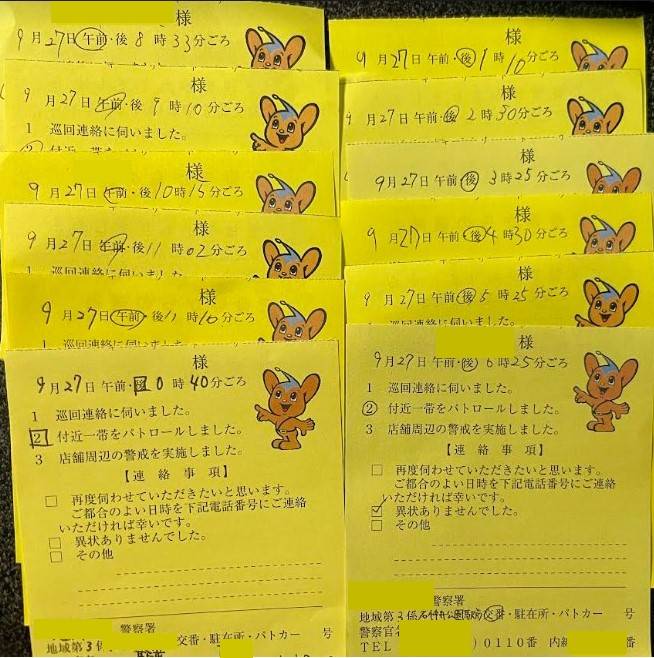 様
9月27日 午前・後 8時33分ごろ
様
9月27日 午前・後 9時10分ごろ
1 巡回連絡に伺いました。
様
9月27日 午前・後 10時15分ごろ
様
9月27日 午前・後 11時02分ごろ
様
9月27日 午前・後 11時10分ごろ
様
9月27日 午前・後 0時40分ごろ
1 巡回連絡に伺いました。
2 付近一帯をパトロールしました。
3 店舗周辺の警戒を実施しました。
【連絡事項】
□ 再度伺わせていただきたいと思います。
ご都合のよい日時を下記電話番号にご連絡
いただければ幸いです。
□ 異状ありませんでした。
□ その他
警察署
地域第3係
交番・駐在所・パトカー 号
様
9月27日 午前・後 1時10分ごろ
様
9月27日 午前・後 2時30分ごろ
様
9月27日 午前・後 3時25分ごろ
様
9月27日 午前・後 4時30分ごろ
様
9月27日 午前・後 5時25分ごろ
様
9月27日 午前・後 6時25分ごろ
1 巡回連絡に伺いました。
2 付近一帯をパトロールしました。
3 店舗周辺の警戒を実施しました。
【連絡事項】
□ 再度伺わせていただきたいと思います。
ご都合のよい日時を下記電話番号にご連絡
いただければ幸いです。
☑ 異状ありませんでした。
□ その他
警察署
地域第3係 交番・駐在所・パトカー 号
警察官
TEL )0110番 内線